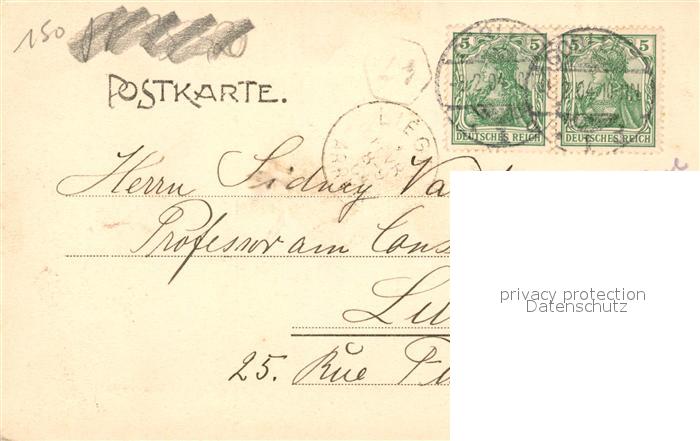 150
POSTKARTE.
5 5 5 5
DEUTSCHES REICH DEUTSCHES REICH
LIEG
Herrn Sidney Va
Professor am Cons
privacy protection
Datenschutz
25. Rue